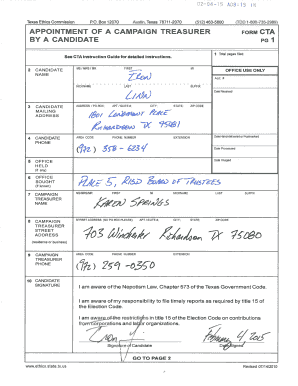 02-06-15 A08:15 IN
Texas Ethics Commission P.O. Box 12070 Austin, Texas 78711-2070 (512) 463-5800 (TDD 1-800-735-2989)
APPOINTMENT OF A CAMPAIGN TREASURER
BY A CANDIDATE
FORM CTA
PG 1
See CTA Instruction Guide for detailed instructions.
1 Total pages filed:
2 CANDIDATE NAME
MS / MRS / MR FIRST MI
NICKNAME LAST SUFFIX
OFFICE USE ONLY
Acct. #
Date Received
3 CANDIDATE MAILING ADDRESS
ADDRESS / PO BOX; APT / SUITE #; CITY; STATE; ZIP CODE
Richardson TX 75081
4 CANDIDATE PHONE
AREA CODE PHONE NUMBER EXTENSION
(972) 358-6234
Date Hand-delivered or Postmarked
Date Processed
Date Imaged
5 OFFICE HELD (if any)
6 OFFICE SOUGHT (if known)
Place 5, RISD Board of Trustees
7 CAMPAIGN TREASURER NAME
MS/MRS/MR FIRST MI NICKNAME LAST SUFFIX
Karen Springs
8 CAMPAIGN TREASURER STREET ADDRESS
(residence or business)
STREET ADDRESS (NO PO BOX PLEASE); APT / SUITE #; CITY; STATE; ZIP CODE
703 Winchester Richardson TX 75080
9 CAMPAIGN TREASURER PHONE
AREA CODE PHONE NUMBER EXTENSION
(972) 259-0350
10 CANDIDATE SIGNATURE
I am aware of the Nepotism Law, Chapter 573 of the Texas Government Code.
I am aware of my responsibility to file timely reports as required by title 15 of
the Election Code.
I am aware of the restrictions in title 15 of the Election Code on contributions
from corporations and labor organizations.
February 4, 2015
Signature of Candidate Date Signed
GO TO PAGE 2
www.ethics.state.tx.us